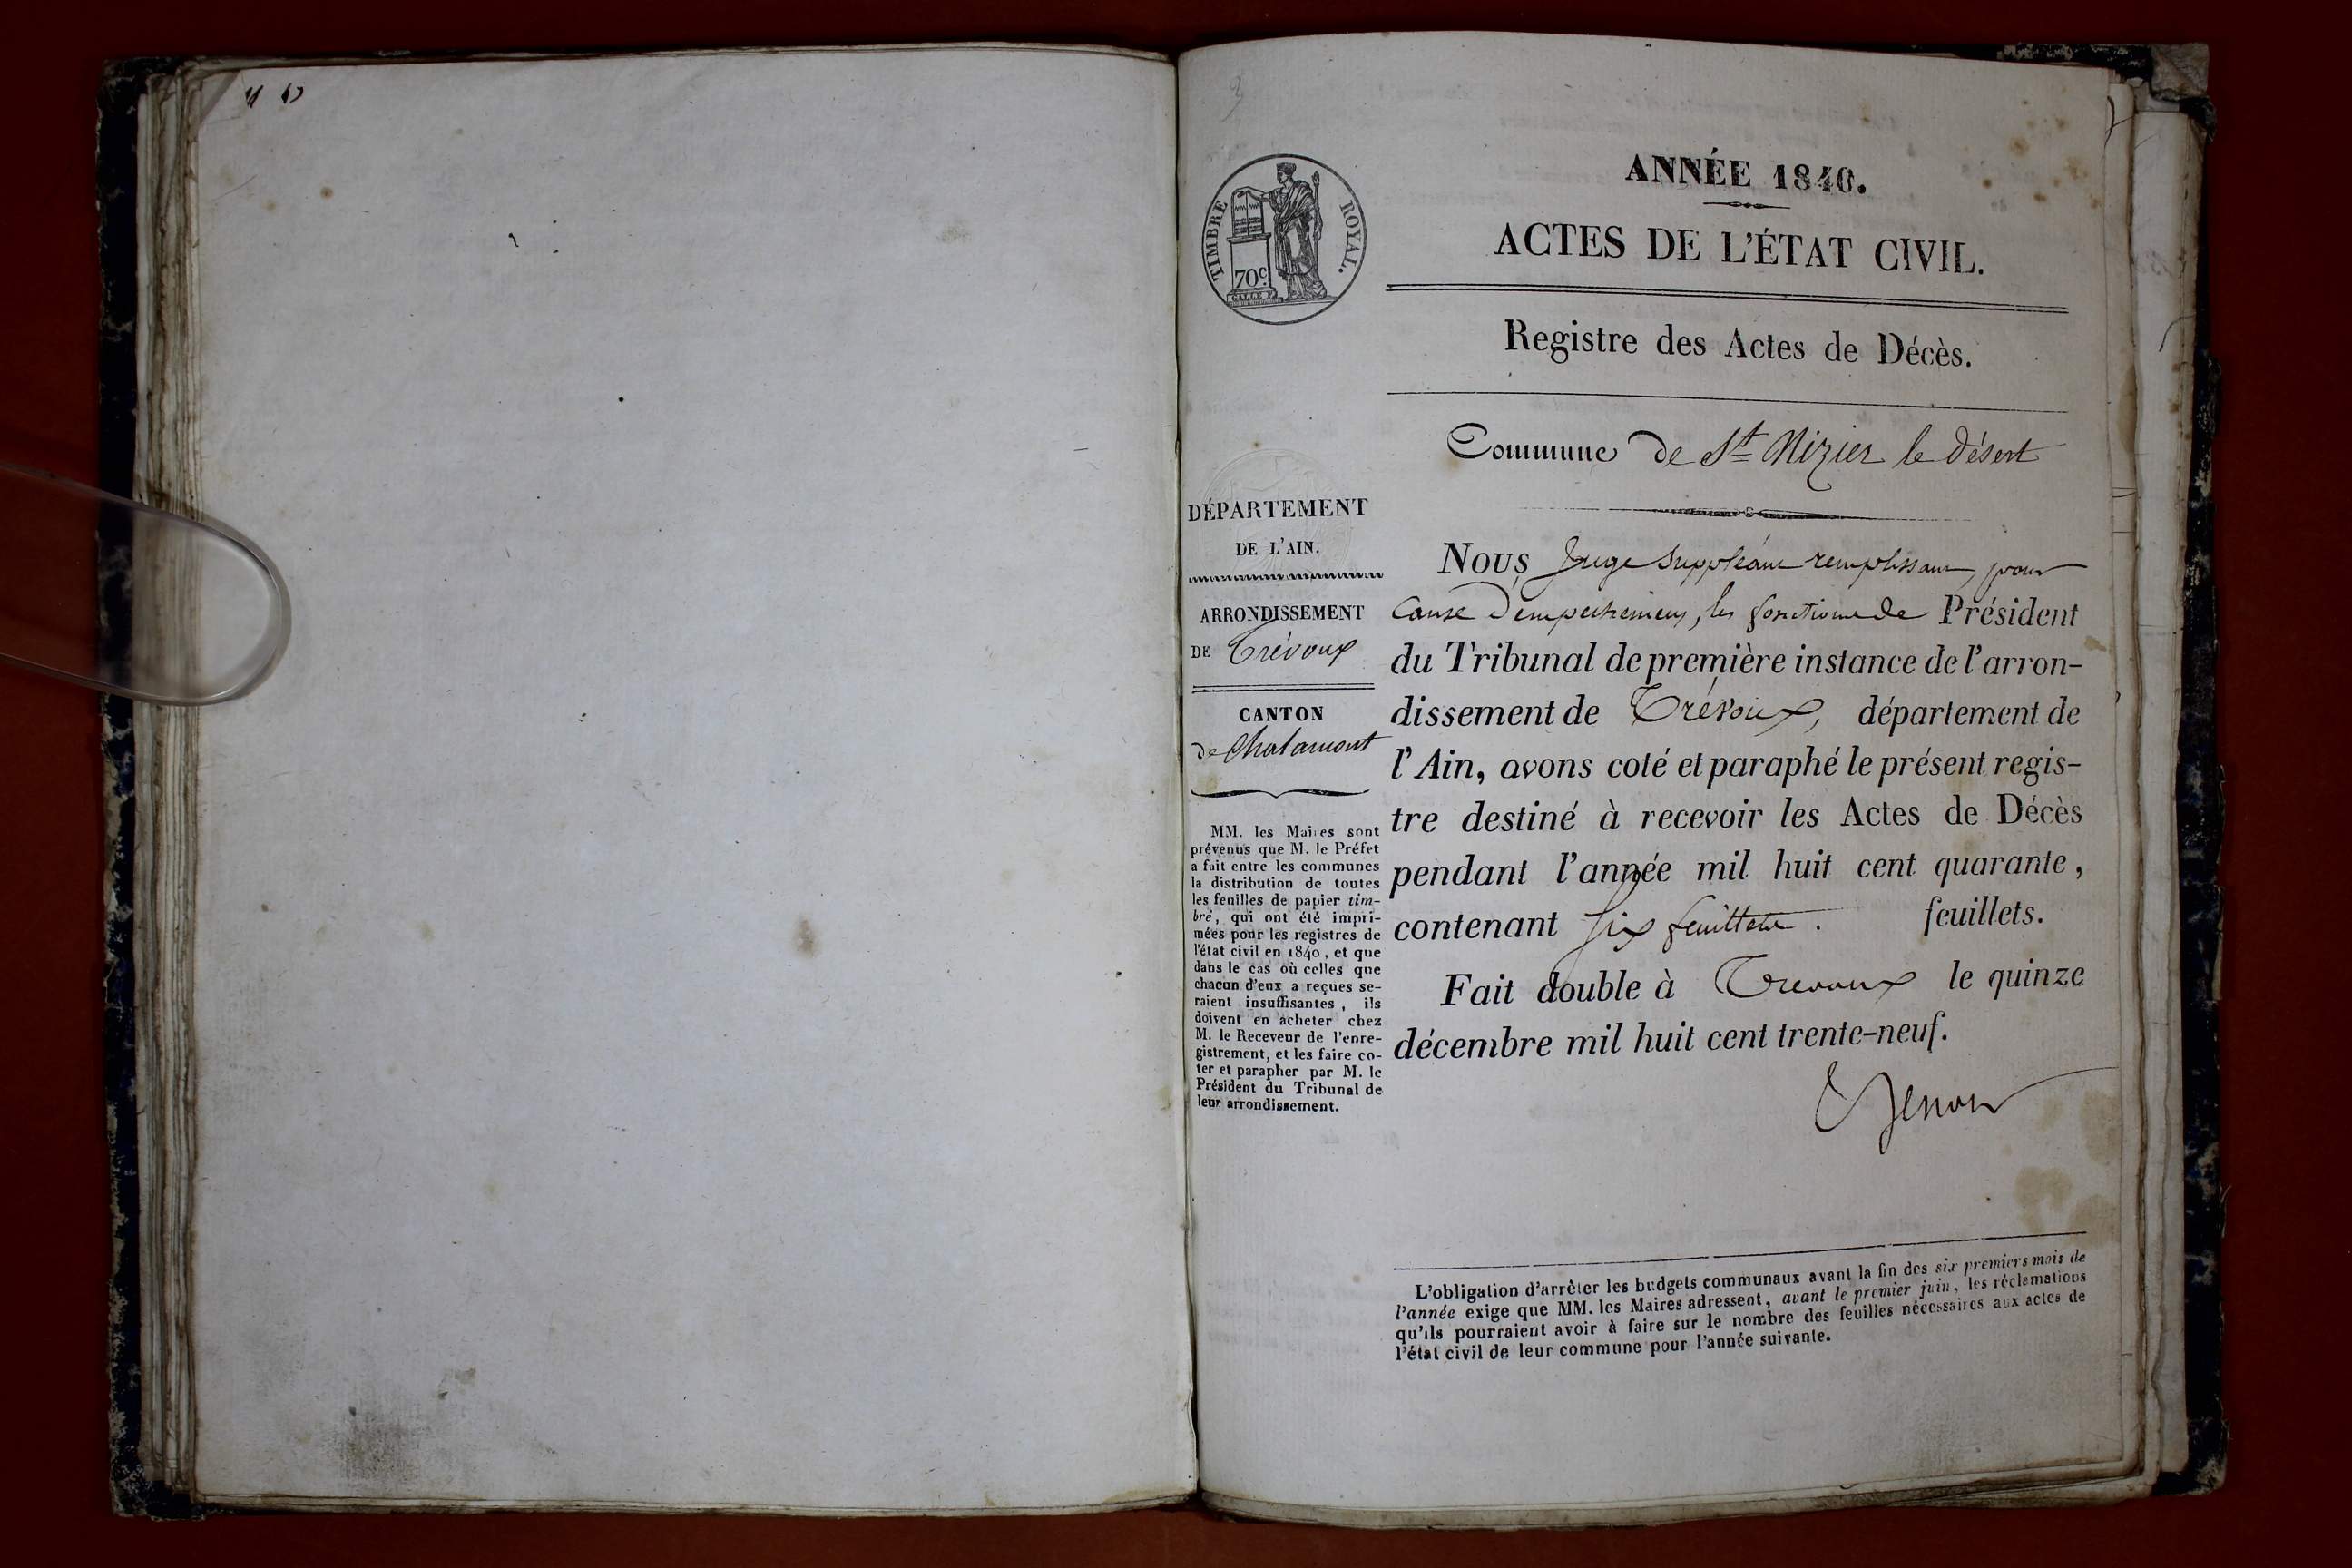 TIMBRE ROYAL.
70c.
ANNÉE 1840.
ACTES DE L'ÉTAT CIVIL.
Registre des Actes de Décès.
Commune de St Nizier le Désert
DÉPARTEMENT
DE L'AIN.
ARRONDISSEMENT
DE Trévoux
CANTON
de Chalamont
MM. les Maires sont
prévenus que M. le Préfet
a fait entre les communes
la distribution de toutes
les feuilles de papier tim-
bré, qui ont été impri-
mées pour les registres de
l'état civil en 1840, et que
dans le cas où celles que
chacun d'eux a reçues se-
raient insuffisantes, ils
doivent en acheter chez
M. le Receveur de l'enre-
gistrement, et les faire co-
ter et parapher par M. le
Président du Tribunal de
leur arrondissement.
Nous Juge suppléant remplissant, pour
cause d'empechement, les fonctions de Président
du Tribunal de première instance de l'arron-
dissement de Trévoux, département de
l'Ain, avons coté et paraphé le présent regis-
tre destiné à recevoir les Actes de Décès
pendant l'année mil huit cent quarante,
contenant six feuillets. feuillets.
Fait double à Trevoux le quinze
décembre mil huit cent trente-neuf.
L'obligation d'arrêter les budgets communaux avant la fin des six premiers mois de
l'année exige que MM. les Maires adressent, avant le premier juin, les réclamations
qu'ils pourraient avoir à faire sur le nombre des feuilles nécessaires aux actes de
l'état civil de leur commune pour l'année suivante.